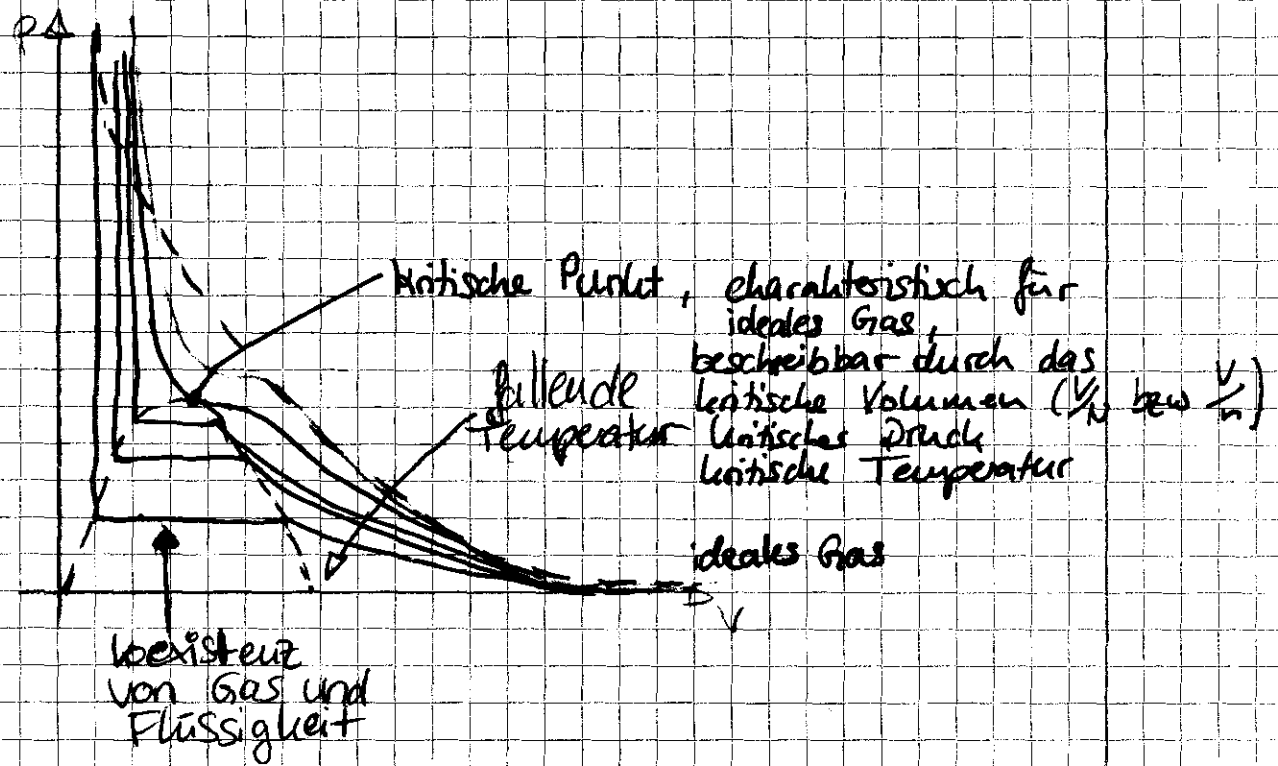 P
kritische Punkt, charakteristisch für
ideales Gas,
beschreibbar durch das
kritische Volumen (V/N bzw V/n)
kritischer Druck
kritische Temperatur
fallende
Temperatur
ideales Gas
V
koexistenz
von Gas und
Flüssigkeit